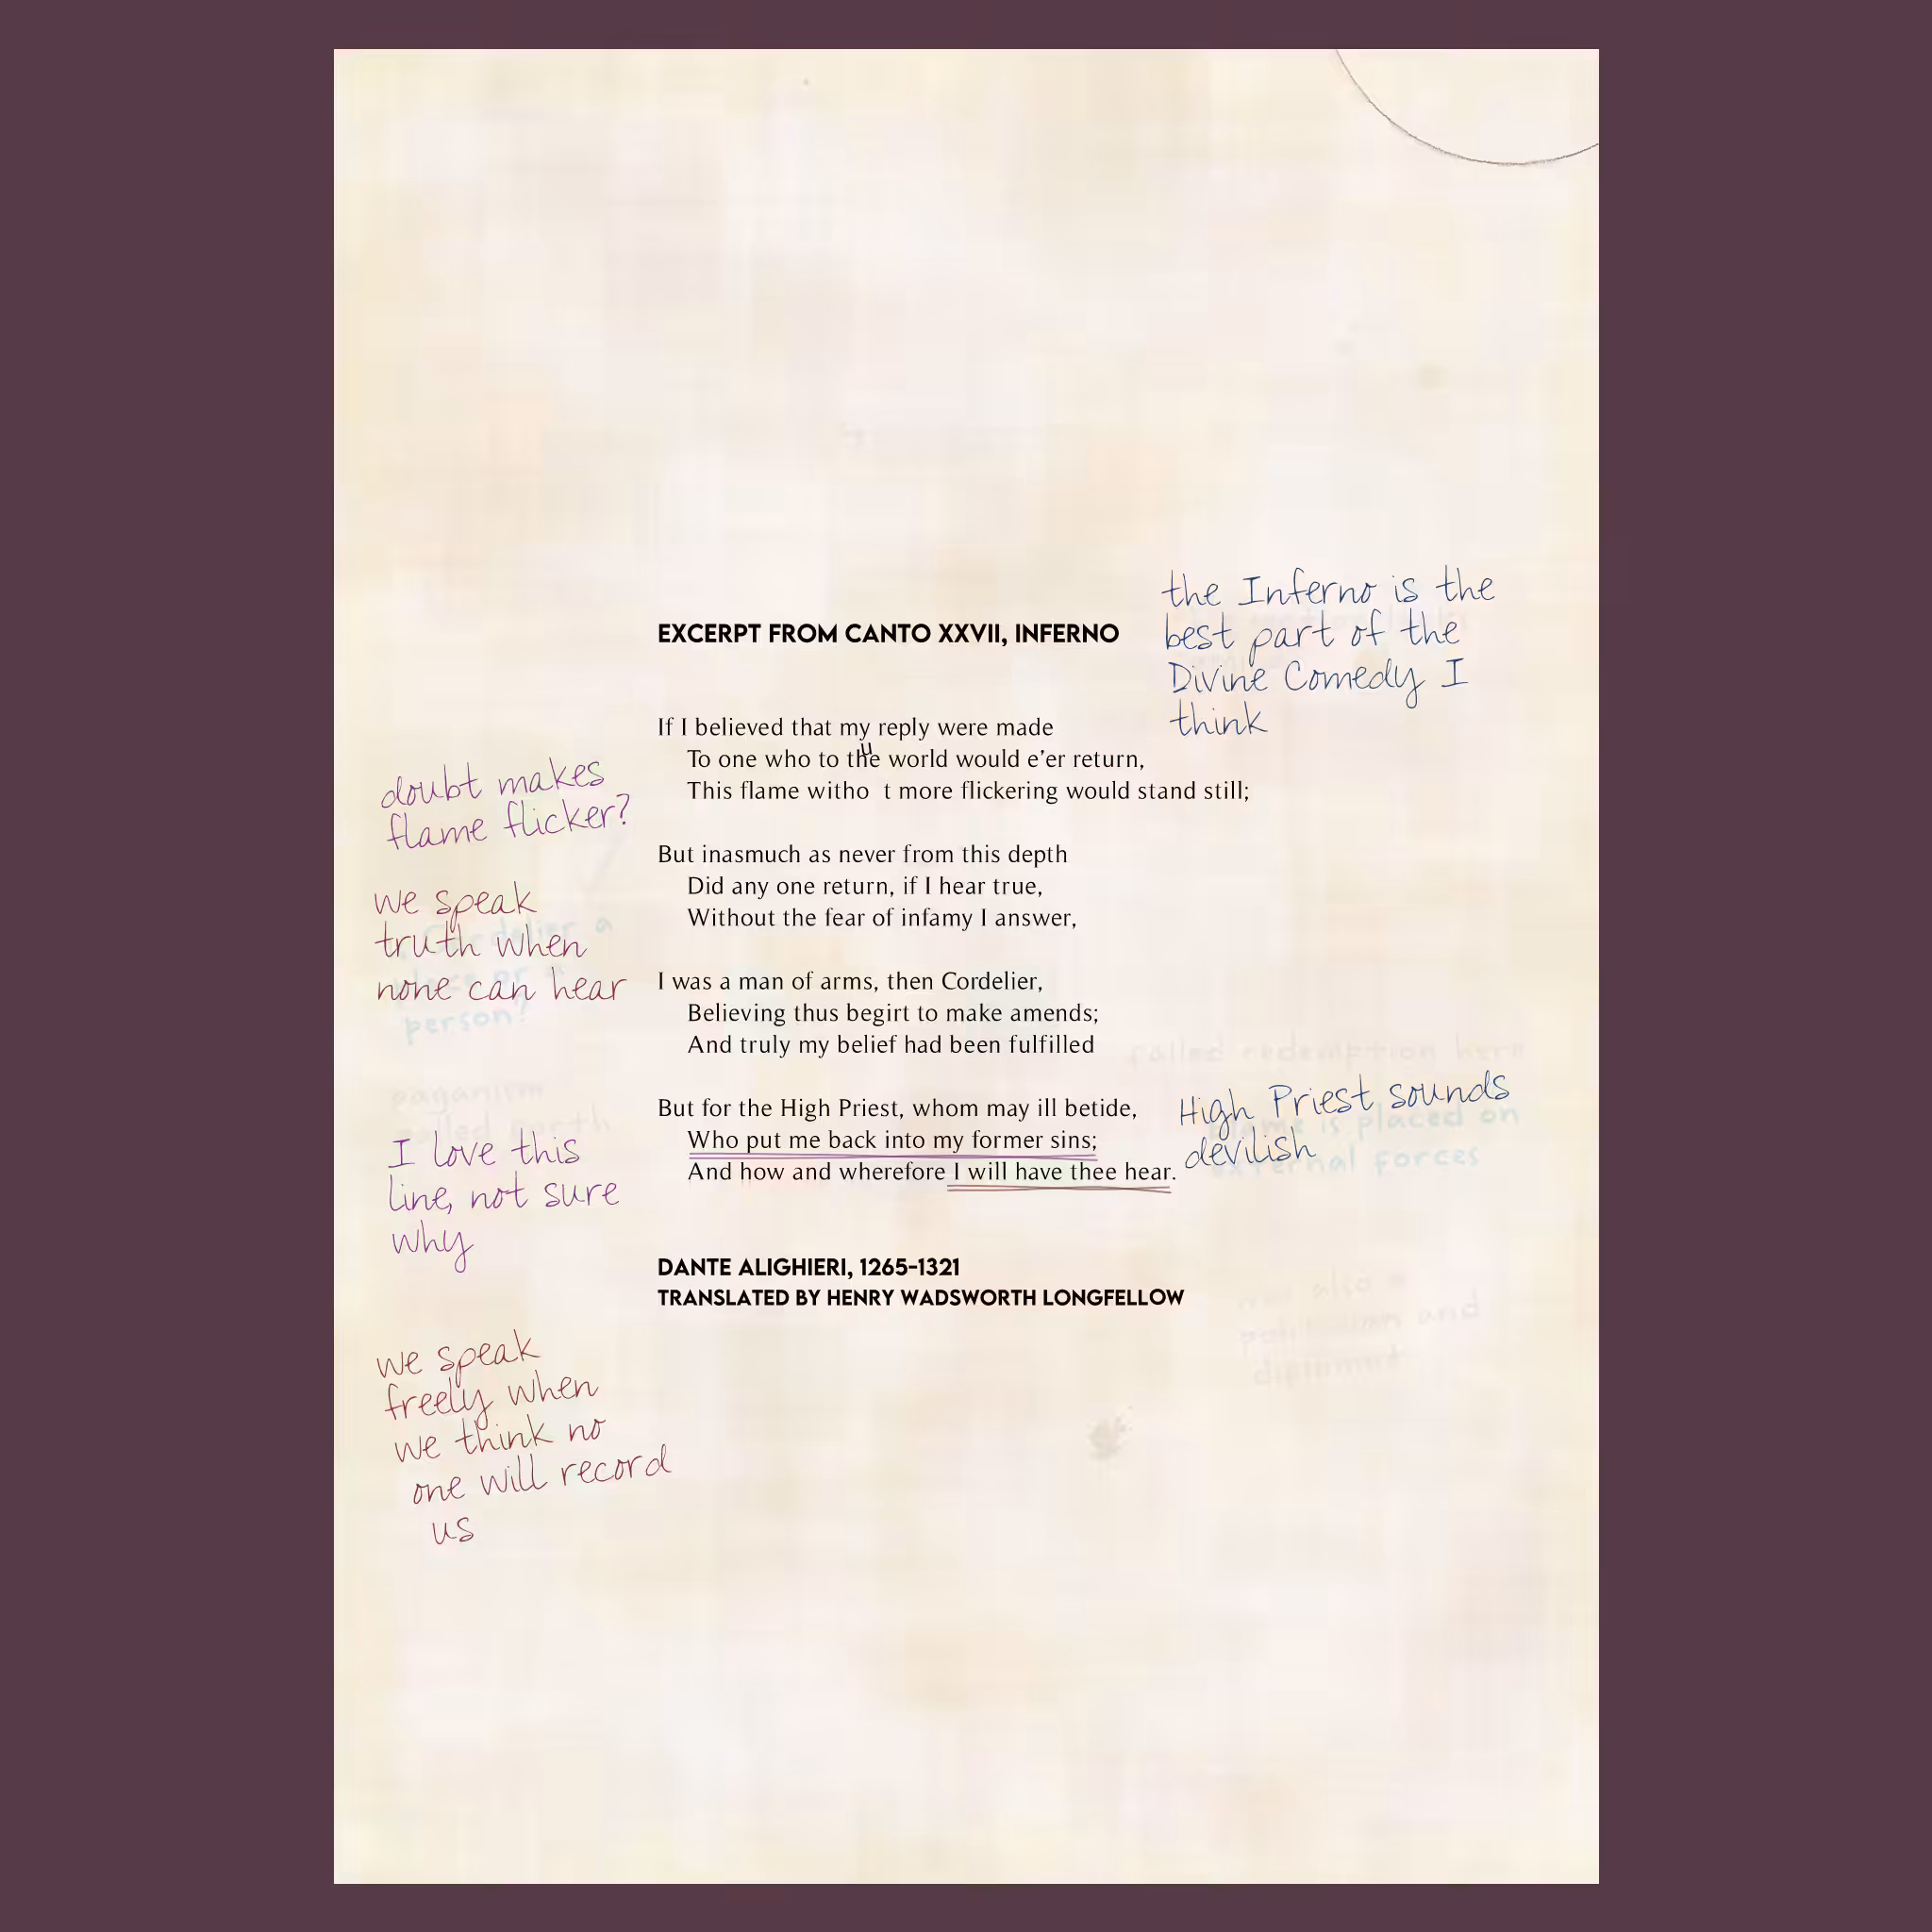 the Inferno is the
best part of the
Divine Comedy I
think
EXCERPT FROM CANTO XXVII, INFERNO
If I believed that my reply were made
To one who to the world would e'er return,
This flame witho t more flickering would stand still;
u
doubt makes
flame flicker?
But inasmuch as never from this depth
Did any one return, if I hear true,
Without the fear of infamy I answer,
we speak
truth when
none can hear
Cordelier a
person?
I was a man of arms, then Cordelier,
Believing thus begirt to make amends;
And truly my belief had been fulfilled
failed redemption here
paganism
But for the High Priest, whom may ill betide,
Who put me back into my former sins;
And how and wherefore I will have thee hear.
High Priest sounds
devilish
blame is placed on
external forces
I love this
line, not sure
why
DANTE ALIGHIERI, 1265-1321
TRANSLATED BY HENRY WADSWORTH LONGFELLOW
was also a
politician and
diplomat
we speak
freely when
we think no
one will record
us